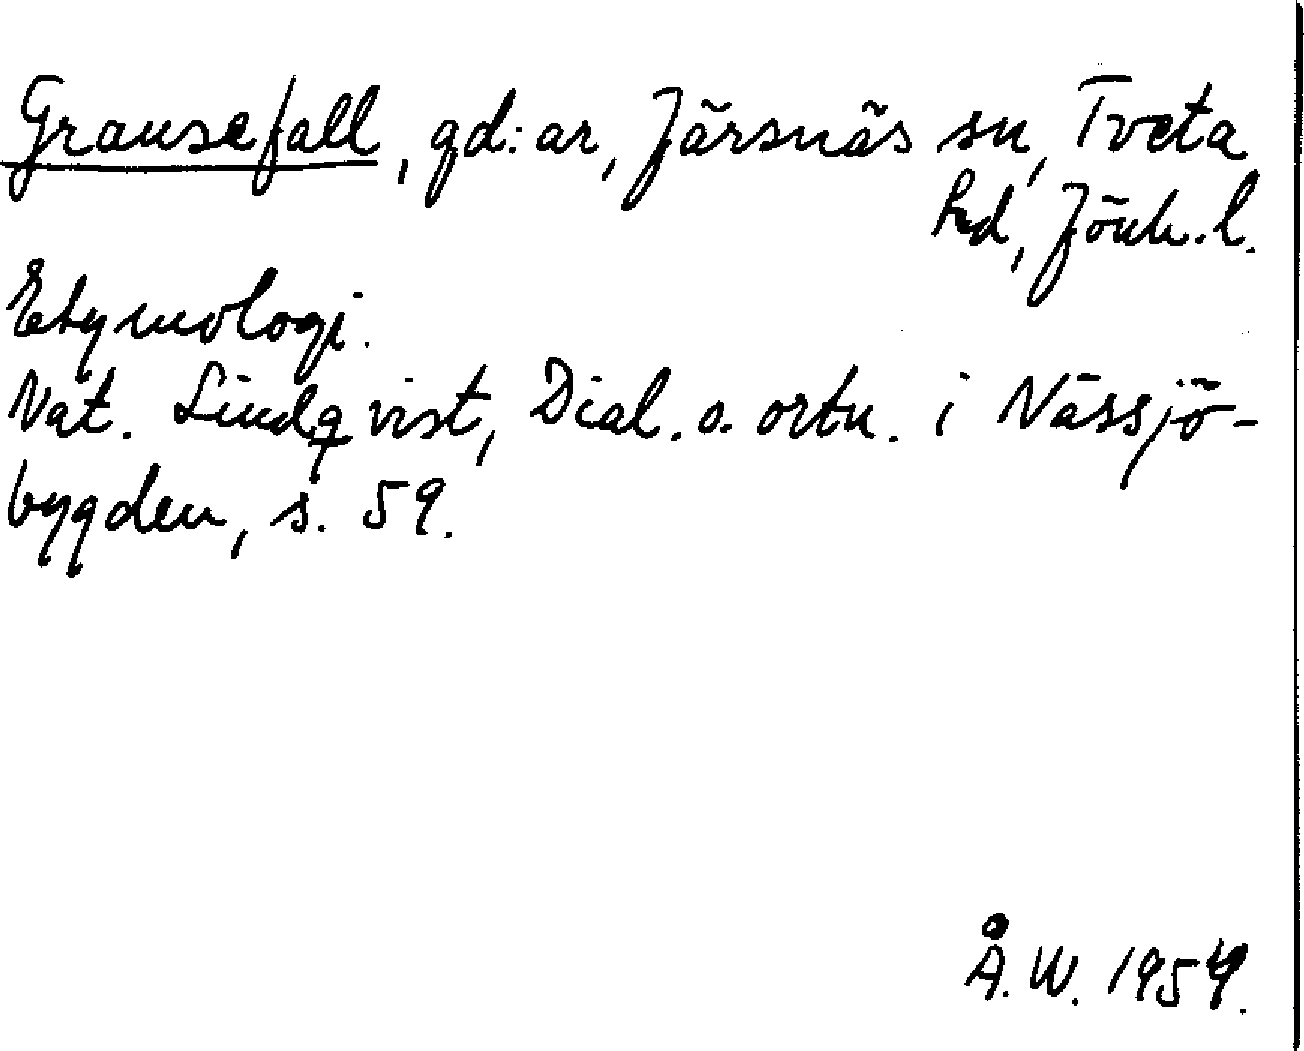 Gransefall, gd:ar, Järsnäs sn, Tveta
hd, Jönk.l.
Etymologi.
Nat. Lindqvist, Dial. o. ortn. i Nässjö-
bygden, s. 59.
Å.W. 1954.